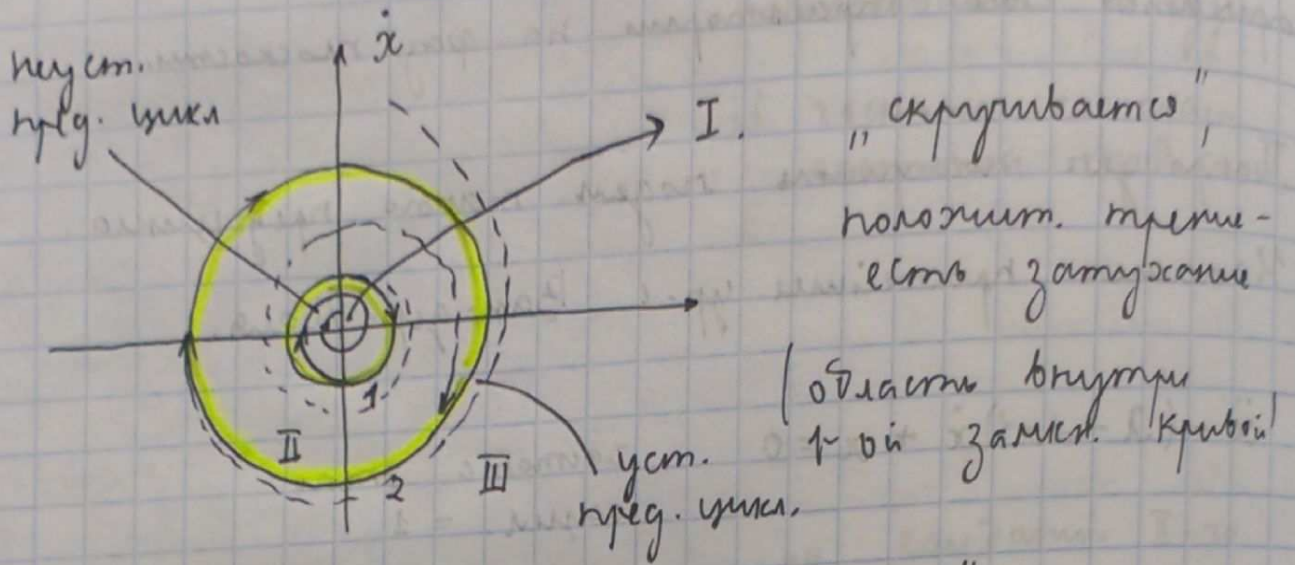 ẋ
неуст.
пред. цикл
I. „скручивается",
положит. трение -
есть затухание
(область внутри
1-ой замкн. кривой)
1
II
2
III
уст.
пред. цикл.